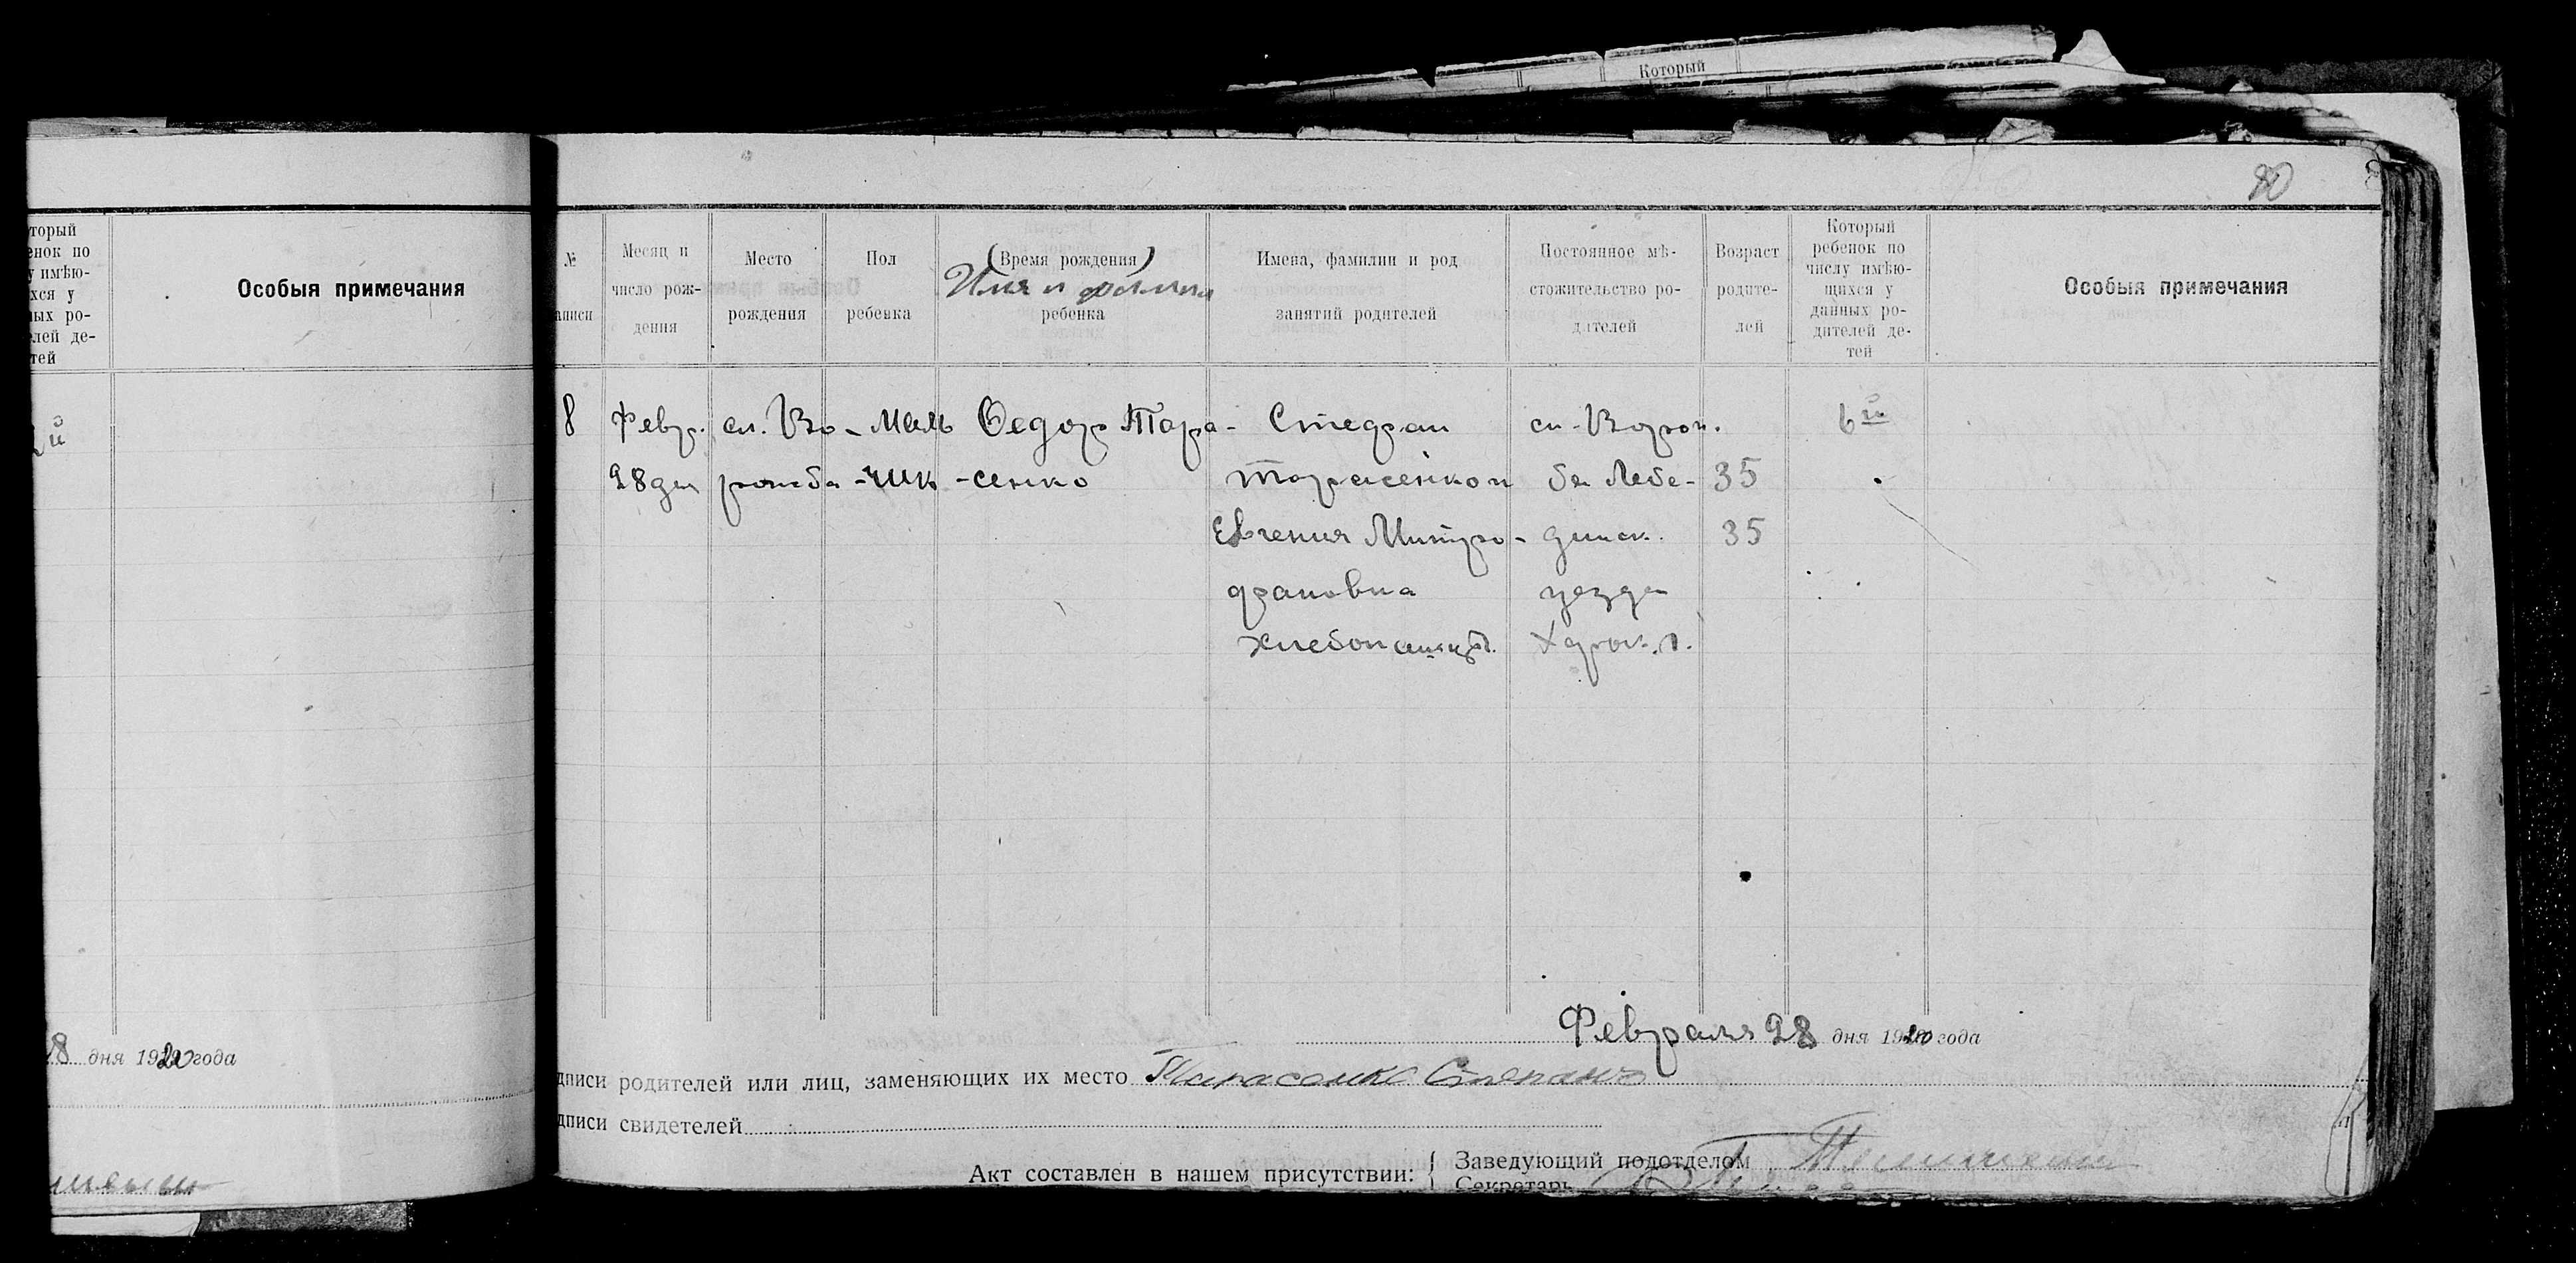 Который
80
оторый
енок по
у имѣю-
хся у
ных ро-
елей де-
тей
Особыя примечания
й
8 дня 1920 года
№
аписи
Месяц и
число рож-
дения
Место
рождения
Пол
ребенка
(Время рождения)
Имя и фамилия
ребенка
Имена, фамилии и род
занятий родителей
Постоянное мѣ-
стожительство ро-
дителей
Возраст
родите-
лей
Который
ребенок по
числу имѣю-
щихся у
данных ро-
дителей де-
тей
Особыя примечания
8 Февр. сл. Во- Маль Федор Тара- Стефан сл. Ворон. 6й
28 дня рожба -чик -сенко Тарасенко и ба Лебе- 35
Евгения Митро- динск. 35
фановна уезда
хлебопашцы. Харьк. г.
Февраля 28 дня 1920 года
дписи родителей или лиц, заменяющих их место Тарасенко Степанъ
дписи свидетелей
Акт составлен в нашем присутствии: { Заведующий подотделом
Секретарь